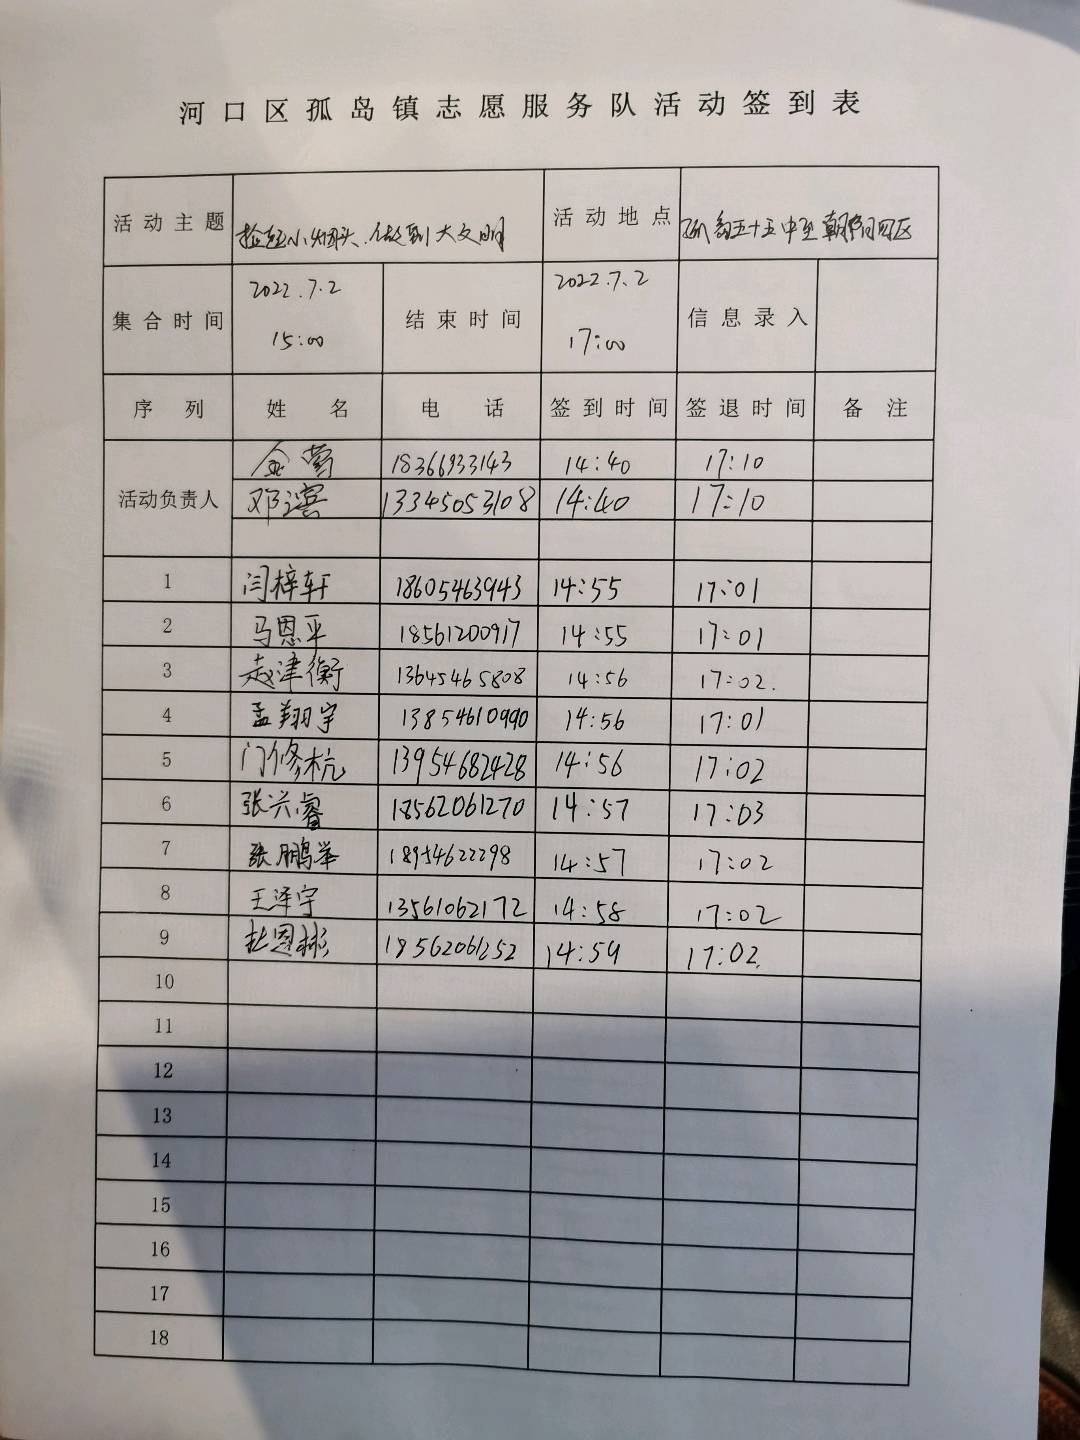 河口区孤岛镇志愿服务队活动签到表
活动主题 捡起小烟头、做到大文明 活动地点 孤岛五十五中至朝阳四区
集合时间 2022.7.2 15:00 结束时间 2022.7.2 17:00 信息录入
序列 姓名 电话 签到时间 签退时间 备注
活动负责人 金莺 18366933143 14:40 17:10
邓滨 13345053108 14:40 17:10
1 闫梓轩 18605463943 14:55 17:01
2 马恩平 18561200917 14:55 17:01
3 赵津衡 13645465808 14:56 17:02.
4 孟翔宇 13854610990 14:56 17:01
5 门修杭 13954682428 14:56 17:02
6 张兴睿 18562061270 14:57 17:03
7 张鹏举 18954622298 14:57 17:02
8 王泽宇 13561062172 14:58 17:02
9 杜恩彬 18562061252 14:59 17:02.
10
11
12
13
14
15
16
17
18